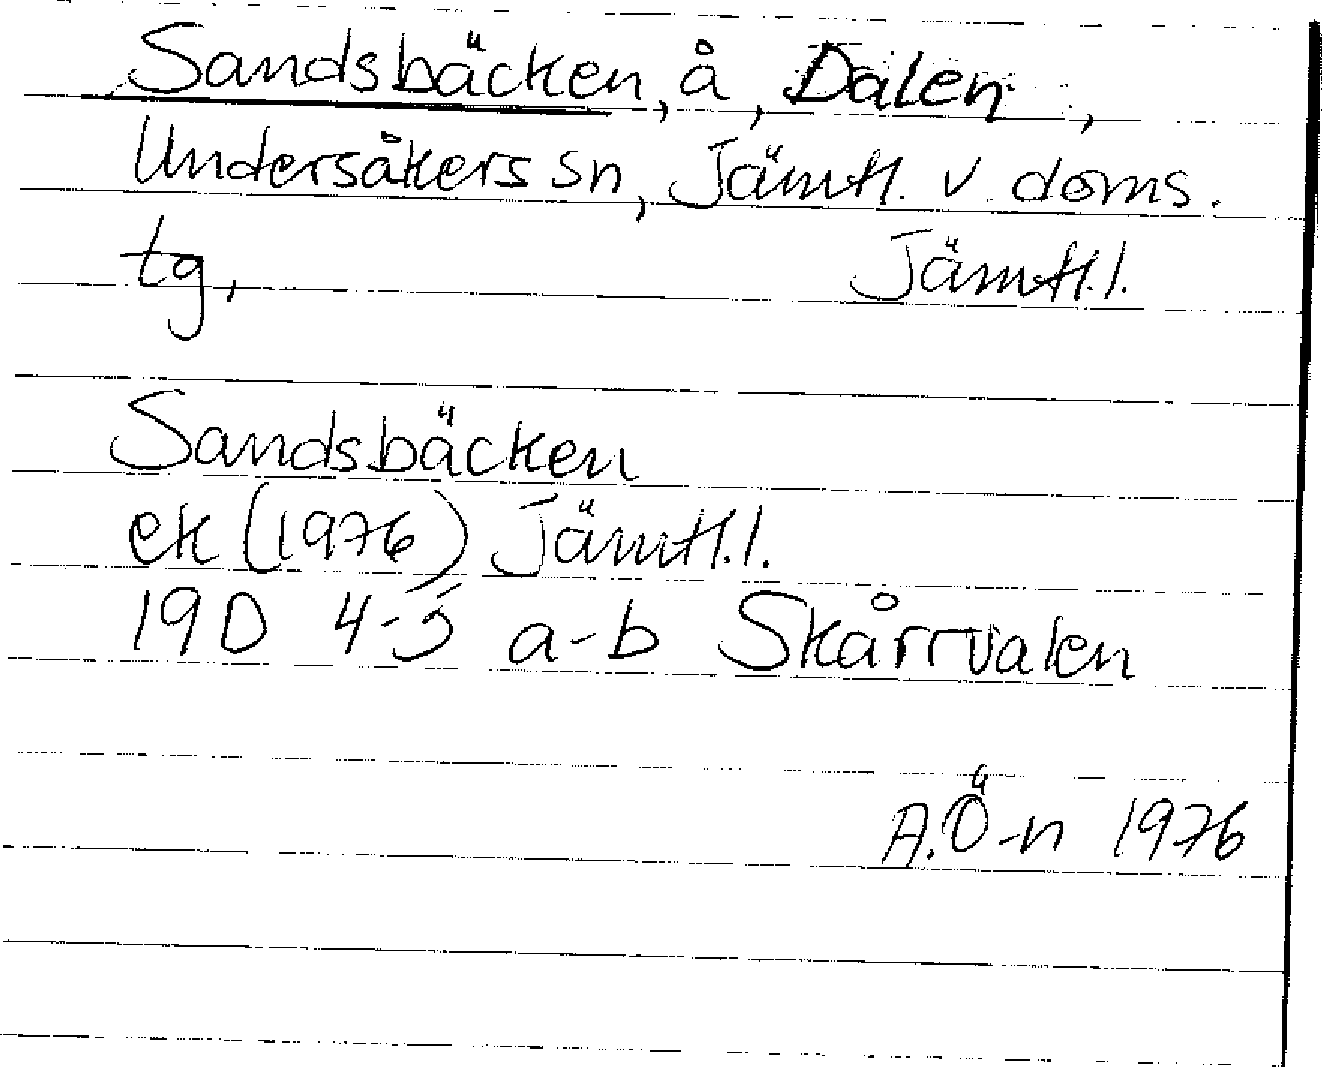 Sandsbäcken, å, Dalen,
Undersåkers sn, Jämtl. v doms.
tg, Jämtl.l.
Sandsbäcken
ek (1976) Jämtl.l.
19D 4-5 a-b Skårrvalen
A.Ö-n 1976